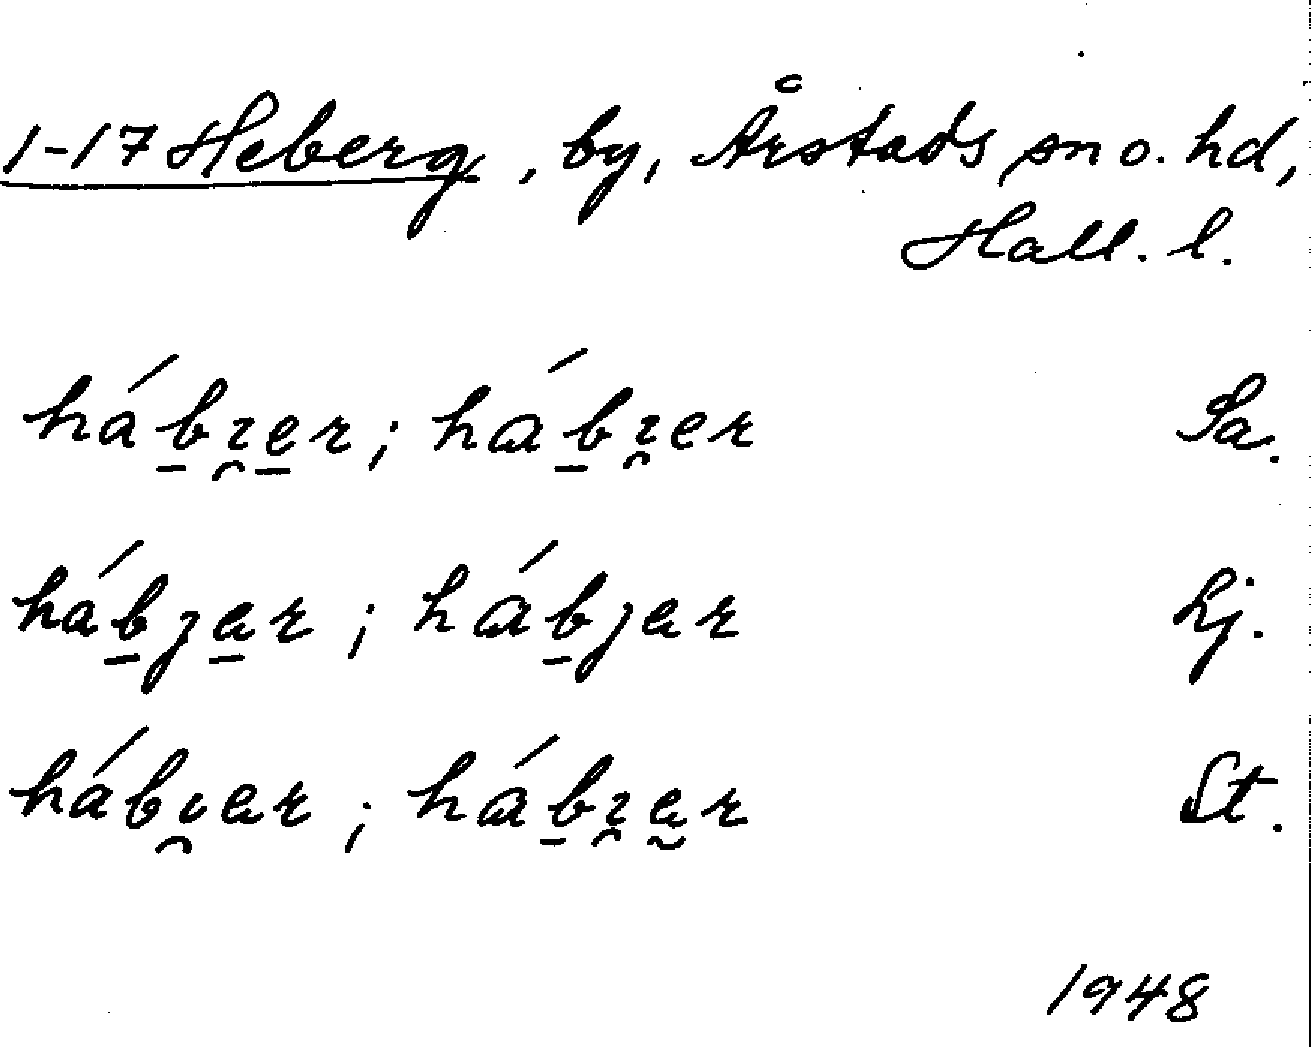 1-17 Heberg, by, Årstads sn o. hd,
Hall. l.
hábɿer; hábɿer Sa.
hábȷar; hábjar Lj.
hábɩar; hábɿar St.
1948